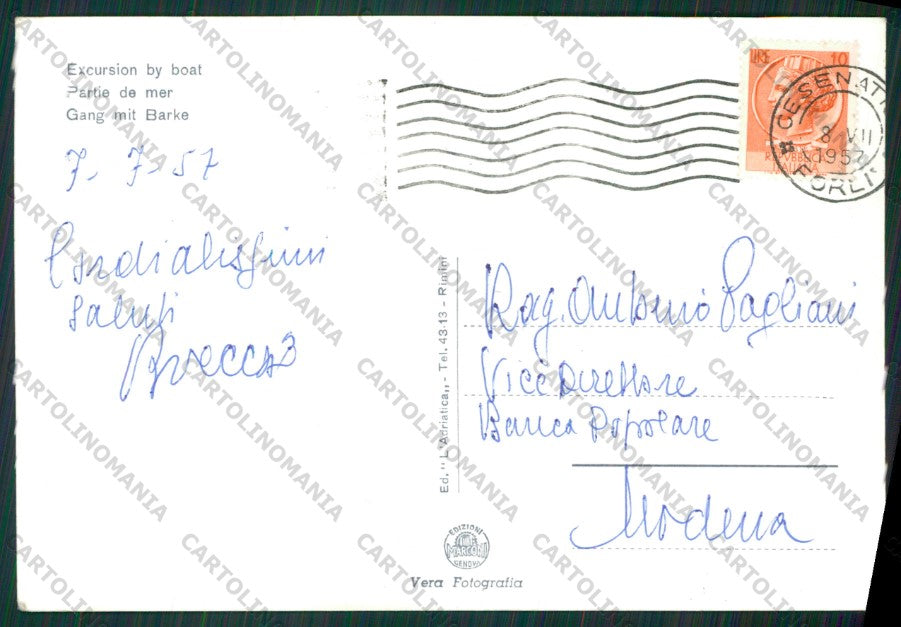 Excursion by boat
Partie de mer
Gang mit Barke
7-7-57
Cordialissimi
saluti
LIRE 10
CESENATI
8 VII
1957
FORLI'
REPUBBLICA
ITALIANA
Ed. "L'Adriatica,, - Tel. 4313 - Rimini
Rag. Antonio Pagliani
Vice Direttore
Banca Popolare
Modena
EDIZIONI
MARCONI
GENOVA
Vera Fotografia
CARTOLINOMANIA